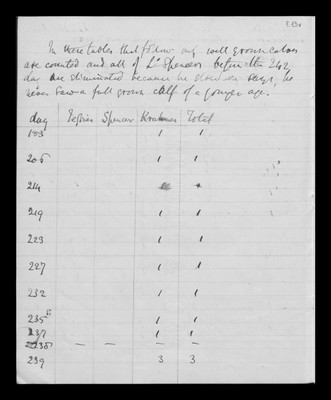 In these tables that follow only well grown calves
are counted and all of Ld Spencers before the 242
day are eliminated because he
never saw a full grown calf of a younger age.
day Spencer Total
1 1
206 1 1
214
219 1 1
223 1 1
227 1 1
232 1 1
235 1 1
237 1 1
— — — —
239 3 3